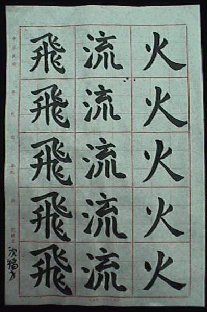 火火火火火
流流流流流
飛飛飛飛飛